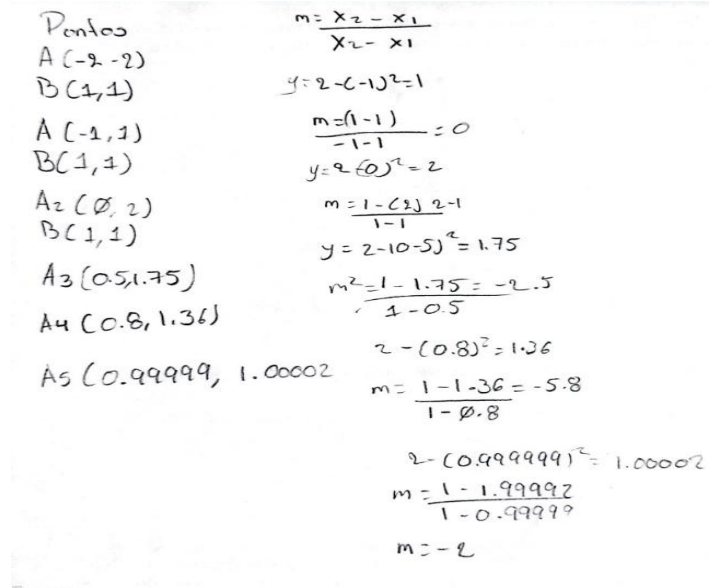 Pontos
A (-2 -2)
B (1,1)
A (-1,1)
B(1,1)
A2 (0, 2)
B(1,1)
A3 (0.5,1.75)
A4 (0.8, 1.36)
A5 (0.99999, 1.00002
m= x2 - x1
x2 - x1
y=2-(-1)²=1
m=(1-1) = 0
-1-1
y=2-(0)²=2
m=1-(2) 2-1
1-1
y = 2-(0-5)²=1.75
m²=1-1.75 = -2.5
1-0.5
2-(0.8)²=1.36
m= 1-1.36 = -5.8
1-0.8
2-(0.999999)²= 1.00002
m=1-1.99992
1-0.99999
m=-2